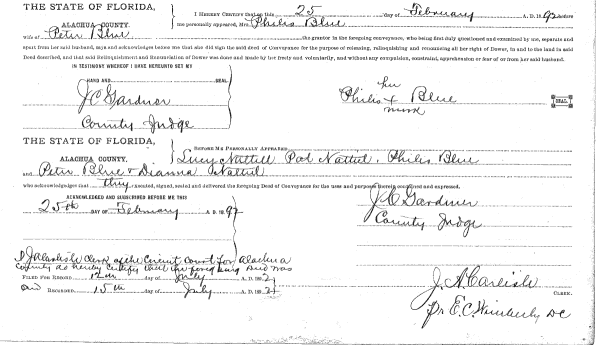 THE STATE OF FLORIDA,
ALACHUA COUNTY.
I HEREBY CERTIFY that on this 25 day of February A. D. 1892 before
me personally appeared, Mrs. Philis Blue
wife of Peter Blue the grantor in the foregoing conveyance, who being first duly questioned and examined by me, separate and
apart from her said husband, says and acknowledges before me that she did sign the said deed of Conveyance for the purpose of releasing, relinquishing and renouncing all her right of Dower, in and to the land in said
Deed described, and that said Relinquishment and Renunciation of Dower was done and made by her freely and voluntarily, and without any compulsion, constraint, apprehension or fear of or from her said husband.
IN TESTIMONY WHEREOF I HAVE HEREUNTO SET MY
HAND AND SEAL
J C Gardner
County Judge
her
Philis + Blue SEAL.
mark
THE STATE OF FLORIDA,
ALACHUA COUNTY.
BEFORE ME PERSONALLY APPEARED
Lucy Nattiel Philis Blue
and Peter Blue & Dianna Nattiel
who acknowledges that they executed, signed, sealed and delivered the foregoing Deed of Conveyance for the uses and purposes therein contained and expressed.
ACKNOWLEDGED AND SUBSCRIBED BEFORE ME THIS
25th DAY OF February A. D. 1892
J. C Gardner
County Judge
I J A Carlisle Clerk of the Circuit Court for Alachua
County do hereby certify that the foregoing Deed was
FILED FOR RECORD 12th day of July A. D. 1892
and RECORDED 15th day of July A. D. 1892
J. A. Carlisle
CLERK.
Pr E. C. Wimberly DC